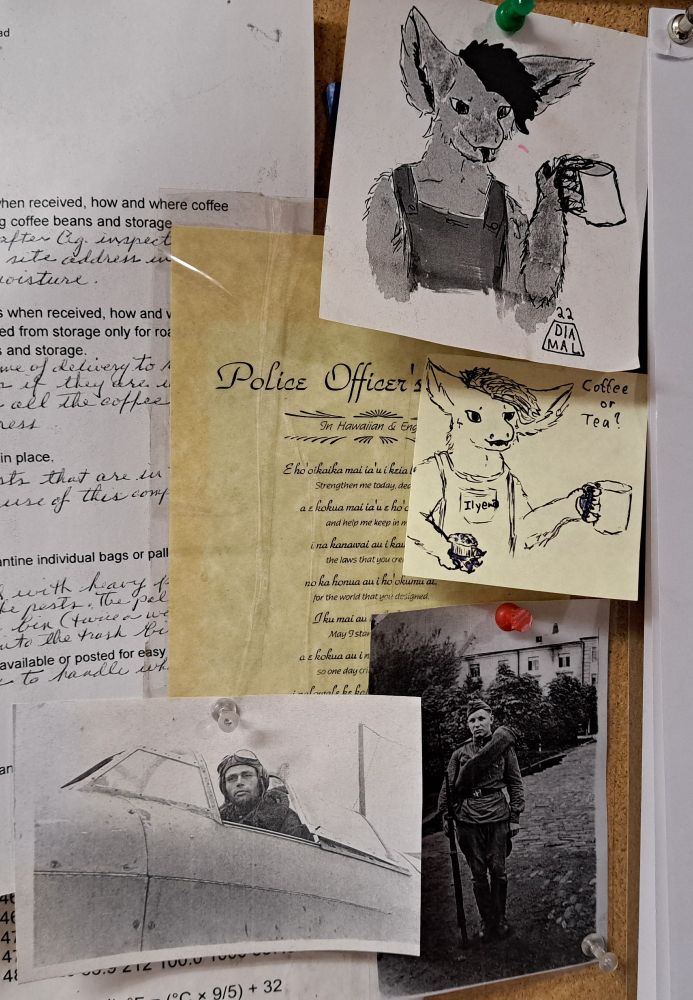 ad
when received, how and where coffee
g coffee beans and storage
after Qg. inspect
site address in
moisture.
s when received, how and w
ed from storage only for roa
s and storage.
me of delivery to
if they are i
all the coffee
ress
in place.
sts that are in
ause of this comp
antine individual bags or pall
with heavy p
the pests. The pal
bin (twice a we
into the trash bi
available or posted for easy
to handle wh
an
46
46
47
48 212 100.0 1000
°F = (°C × 9/5) + 32
Police Officer's
In Hawaiian & Eng
E ho'oikaika mai ia'u i keia l
Strengthen me today, dea
a e kokua mai ia'u e ho'o
and help me keep in m
i na kanawai au i kau
the laws that you crea
no ka honua au i ho'okumu ai,
for the world that you designed.
I ku mai au
May I stan
a e kokua au i n
so one day cri
22
DIA
MAL
Coffee
or
Tea?
Ilyen